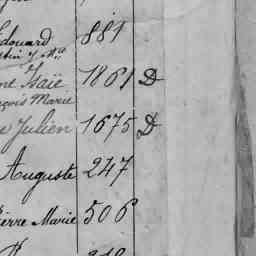 Edouard 881
Isaïe 1861 D
François Marie
Julien 1675 D
Auguste 247
Pierre Marie 506